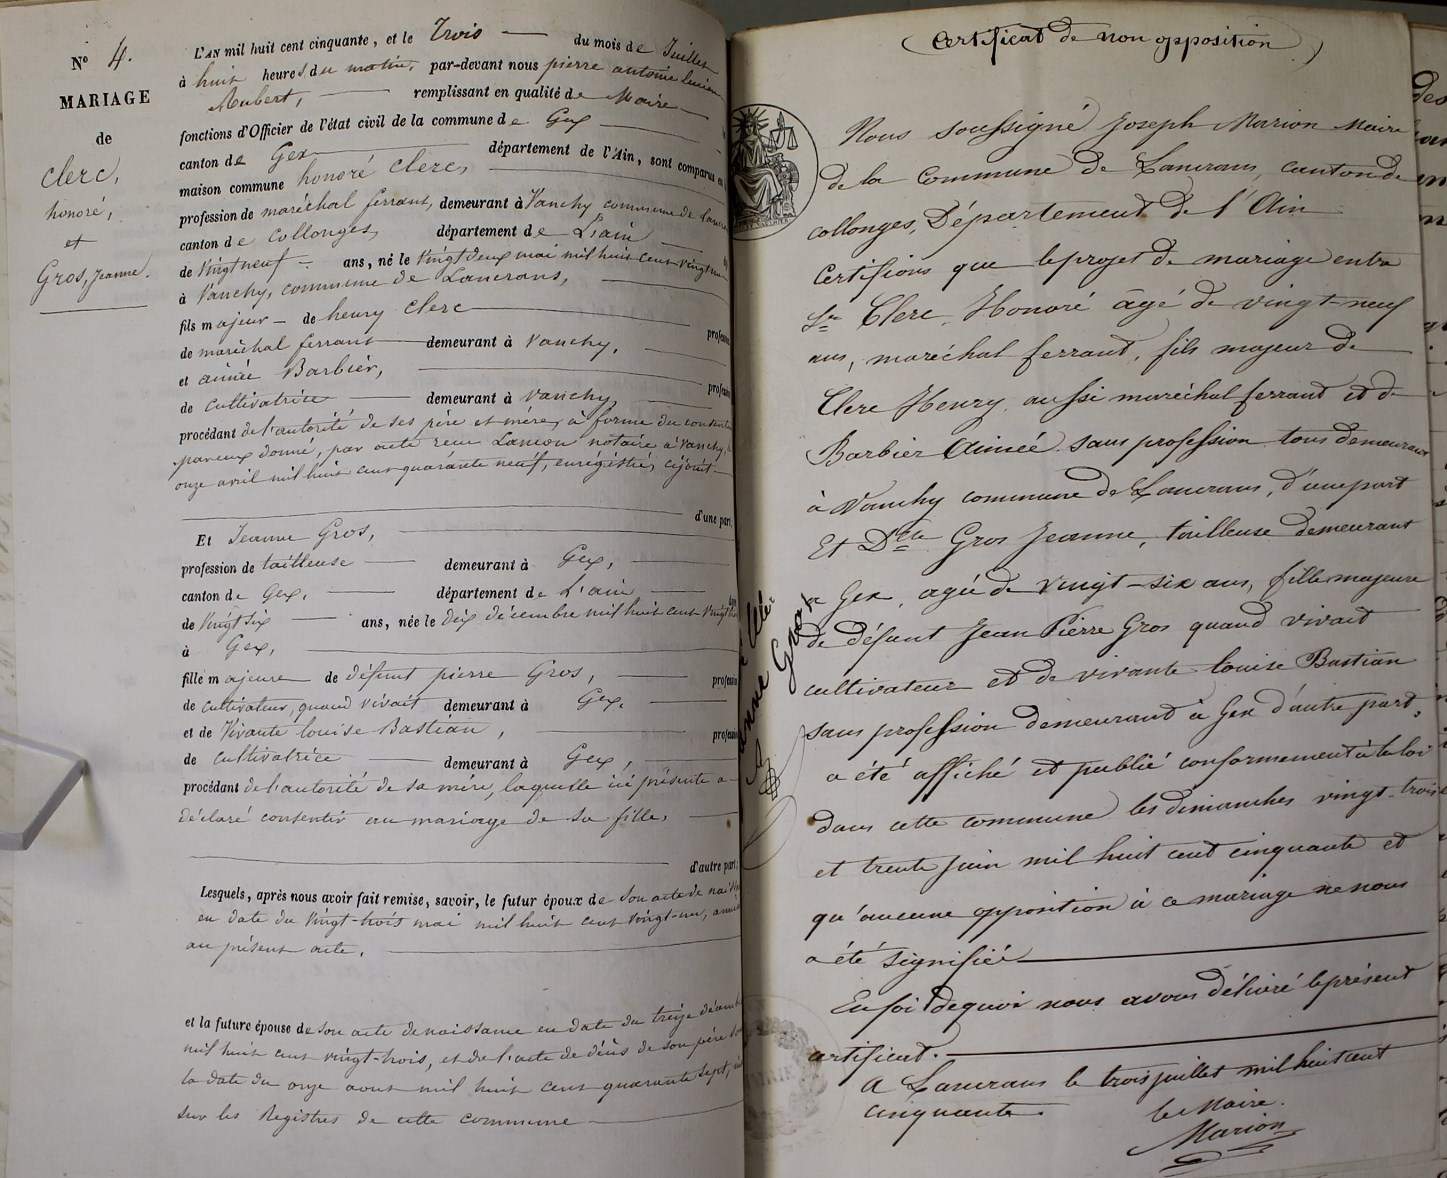 N° 4.
MARIAGE
de
clerc,
honoré,
et
Gros, Jeanne.
L'AN mil huit cent cinquante, et le Trois du mois de Juillet
à huit heures du matin, par-devant nous pierre antoine lucien
Aubert, remplissant en qualité de Maire
fonctions d'Officier de l'état civil de la commune de Gex
canton de Gex département de l'Ain, sont comparus en
maison commune honoré Clerc,
profession de maréchal ferrant, demeurant à Vanchy commune de
canton de Collonges, département de L'ain
de Vingt neuf ans, né le Vingt deux mai mil huit cent vingt
à Vanchy, commune de Lancrans,
fils majeur de henry Clerc
de maréchal ferrant demeurant à Vanchy,
et aimée Barbier,
de cultivatrice demeurant à Vanchy,
procédant de l'autorité de ses père et mère, à forme du
par eux donné, par acte reçu notaire à Vanchy,
onze avril mil huit cent quarante neuf, enrégistré, cijoint
d'une part,
Et Jeanne Gros,
profession de tailleuse demeurant à Gex,
canton de Gex, département de L'ain
de Vingt six ans, née le Dix décembre mil huit cent Vingt
à Gex,
fille majeure de défunt pierre Gros,
de cultivateur, quand vivait demeurant à Gex.
et de Vivante louise Bastian,
de cultivatrice demeurant à Gex,
procédant de l'autorité de sa mère, laquelle ici présente a
déclaré consentir au mariage de sa fille.
d'autre part,
Lesquels, après nous avoir fait remise, savoir, le futur époux de son acte de
en date du Vingt-trois mai mil huit cent Vingt-un,
au présent acte.
et la future épouse de son acte de naissance en date du treize
mil huit cent vingt-trois, et de l'acte de décès de son père
la date du onze aout mil huit cent quarante sept,
sur les Registres de cette commune
(Certificat de non opposition)
Nous Soussigné Joseph Marion Maire
de la Commune de Lancrans, canton de
collonges, Département de l'Ain
Certifions que le projet de mariage entre
Sr Clerc, Honoré âgé de vingt-neuf
ans, maréchal ferrant, fils majeur de
Clerc Henry, aussi maréchal ferrant et de
Barbier Aimée sans profession tous demeurant
à Vanchy commune de Lancrans, d'une part
Et Dlle Gros Jeanne, tailleuse demeurant
a Gex, agée de vingt-six ans, fille majeure
de défunt Jean Pierre Gros quand vivait
cultivateur et de vivante louise Bastian
sans profession demeurant à Gex d'autre part,
a été affiché et publié conformement à la loi
dans cette commune les dimanches vingt-trois
et trente juin mil huit cent cinquante et
qu'aucune opposition à ce mariage ne nous
a été signifiée
En foi de quoi nous avons délivré le présent
certificat.
A Lancrans le trois juillet mil huit cent
cinquante.
le Maire.
Marion